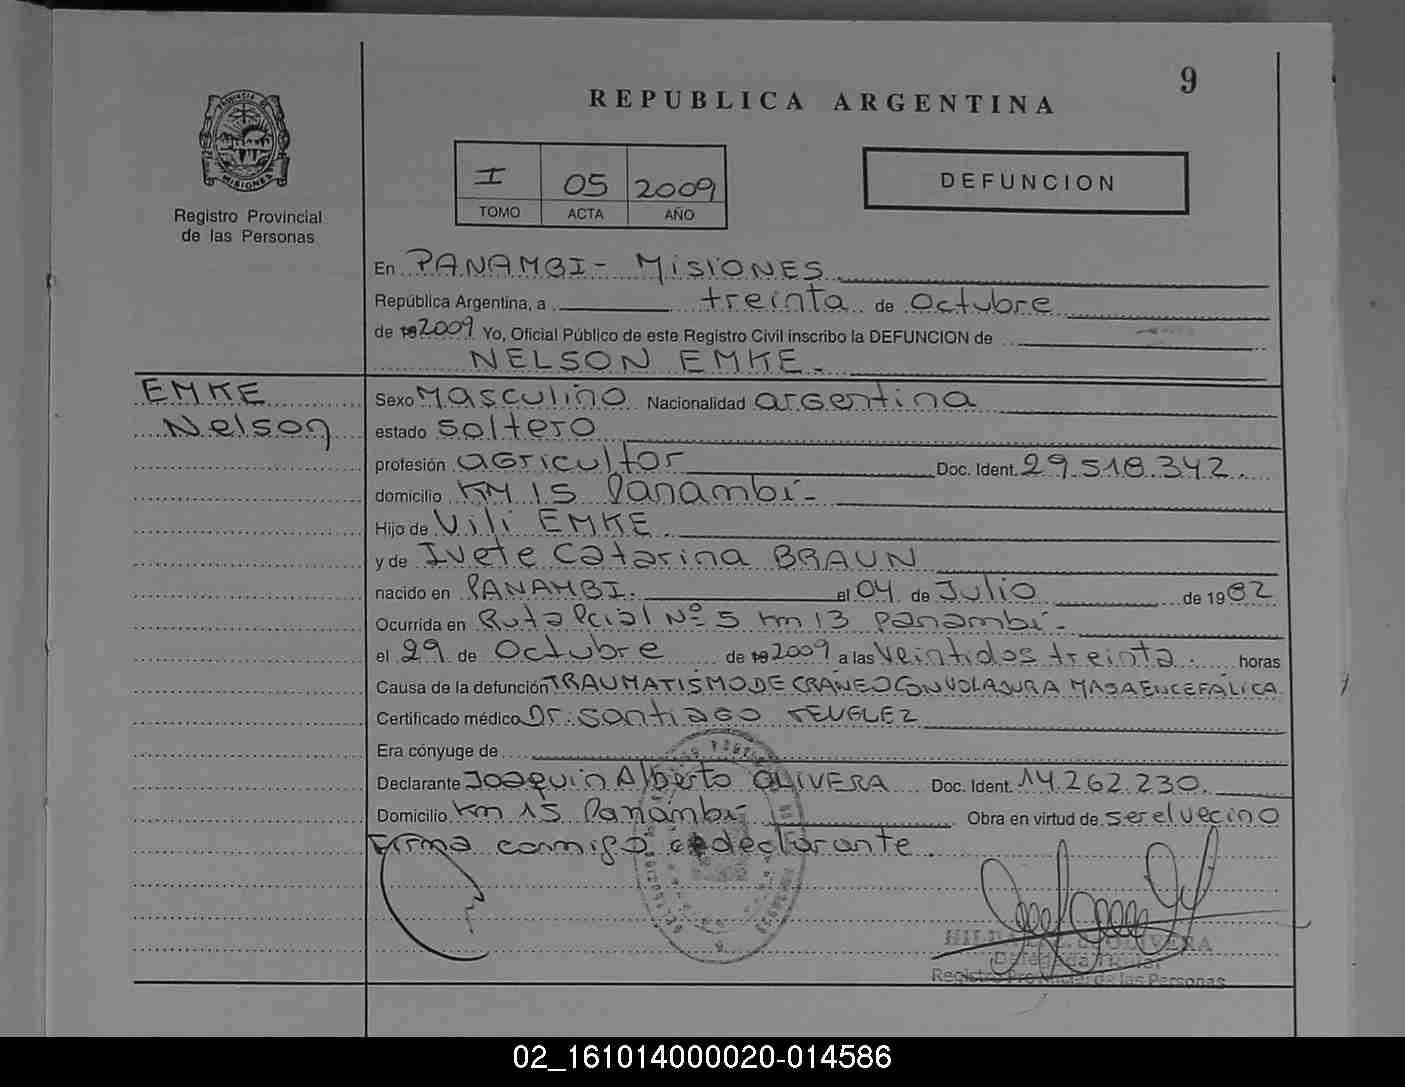 9
REPUBLICA ARGENTINA
I 05 2009
TOMO ACTA AÑO
DEFUNCION
PROVINCIA DE
MISIONES
Registro Provincial
de las Personas
En PANAMBI - MISIONES
República Argentina, a treinta de Octubre
de 19 2009 Yo, Oficial Público de este Registro Civil inscribo la DEFUNCION de
NELSON EMKE.
EMKE
Nelson
Sexo Masculino Nacionalidad argentina
estado Soltero
profesión agricultor Doc. Ident. 29.518.342
domicilio KM 15 Panambí-
Hijo de Vili EMKE
y de Ivete Catarina BRAUN
nacido en PANAMBI. el 04 de Julio de 1982
Ocurrida en Ruta Pcial Nº 5 Km 13 Panambí-
el 29 de Octubre de 19 2009 a las Veintidos treinta. horas
Causa de la defunción TRAUMATISMO DE CRÁNEO CON VOLADURA MASA ENCEFÁLICA
Certificado médico Dr. Santiago
Era cónyuge de
Declarante Joaquin Alberto OLIVERA Doc. Ident. 14.262.230.
Domicilio Km 15 Panambí- Obra en virtud de ser el vecino
Firma conmigo el declarante.
OLIVERA
Delegada Titular
Registro Provincial de las Personas
02_161014000020-014586